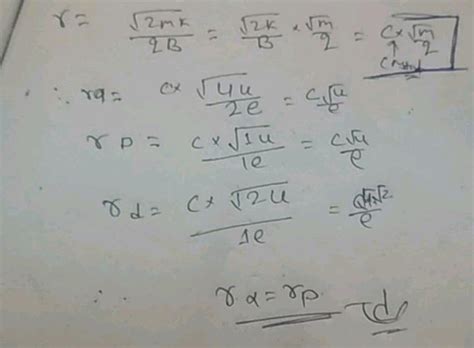 r = √2mk / 2B = √2k / B × √m / 2 = C × √m / 2
∴ r9 = C × √4u / 2e = C√u / e
r p = C × √1u / 1e = C√u / e
r d = C × √2u / 1e = √2 / e
∴ r α = r p